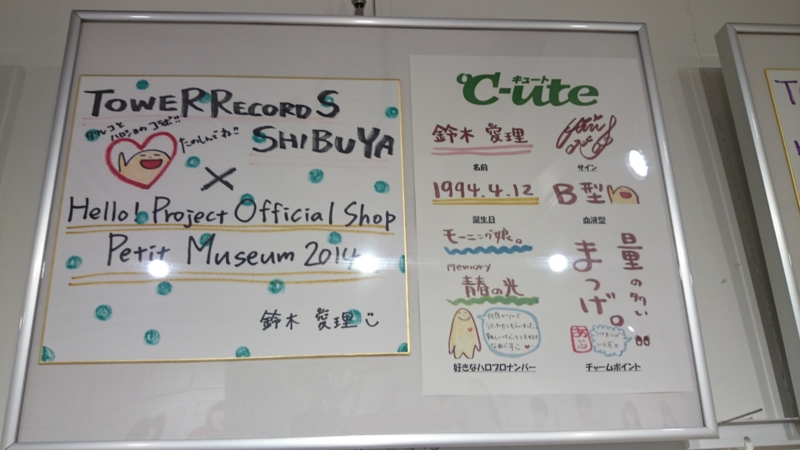 TOWER RECORDS
SHIBUYA
タワレコと
ハロショの コラボ!!
たのしんでね!!
×
Hello! Project Official Shop
Petit Museum 2014
鈴木 愛理
℃-ute
キュート
鈴木 愛理
名前
サイン
1994.4.12
B型
誕生日
血液型
モーニング娘。
memory
青春の光
量の多い
まつげ。
好きなハロプロナンバー
チャームポイント